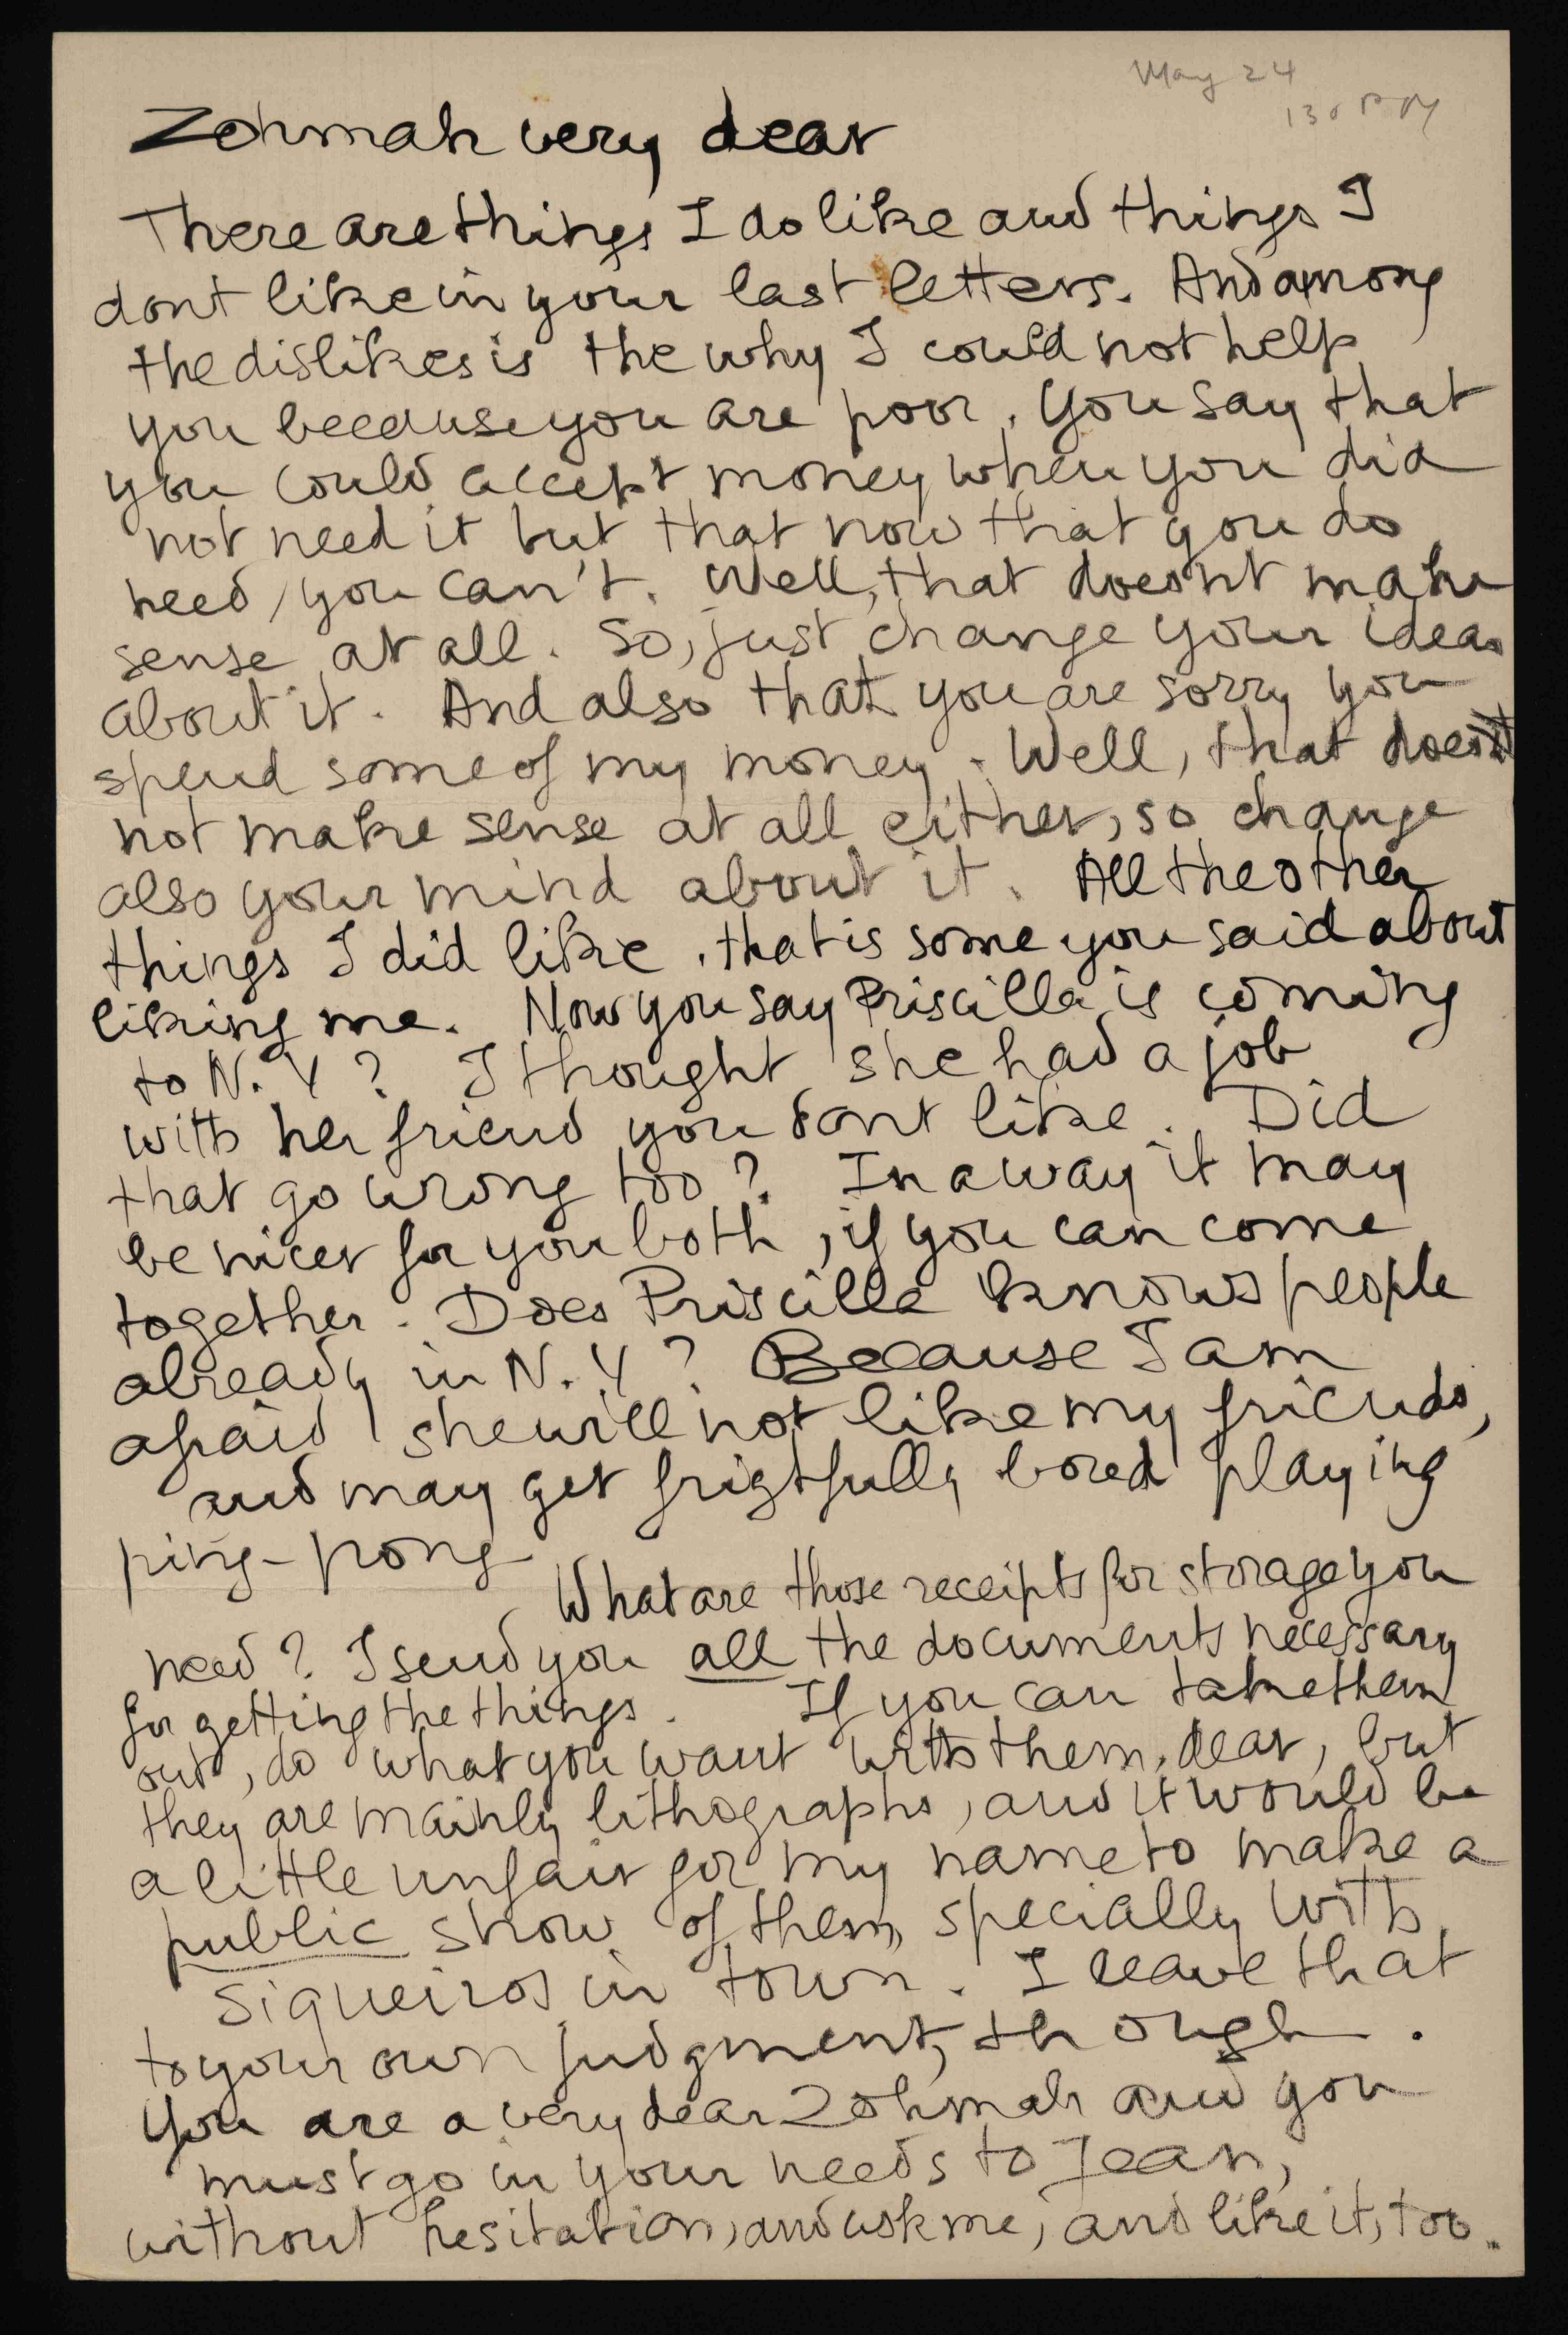 May 24
130 PM
Zohmah very dear
There are things I do like and things I
dont like in your last letters. And among
the dislikes is the why I could not help
you because you are poor. You say that
you could accept money when you did
not need it but that now that you do
need, you can't. Well, that doesn't make
sense at all. So, just change your ideas
about it. And also that you are sorry you
spend some of my money. Well, that does
not make sense at all either, so change
also your mind about it. All the other
things I did like, that is some you said about
liking me. Now you say Priscilla is coming
to N. Y? I thought she had a job
with her friend you dont like. Did
that go wrong too? In a way it may
be nicer for you both, if you can come
together. Does Priscilla knows people
already in N. Y? Because I am
afraid she will not like my friends,
and may get frigtfully bored playing
ping-pong
What are those receipts for storage you
need? I send you all the documents necessary
for getting the things. If you can take them
out, do what you want with them, dear, but
they are mainly lithographs, and it would be
a little unfair for my name to make a
public show of them, specially with
Siqueiros in town. I leave that
to your own judgment, though.
You are a very dear Zohmah and you
must go in your needs to Jean,
without hesitation, and ask me, and like it, too.